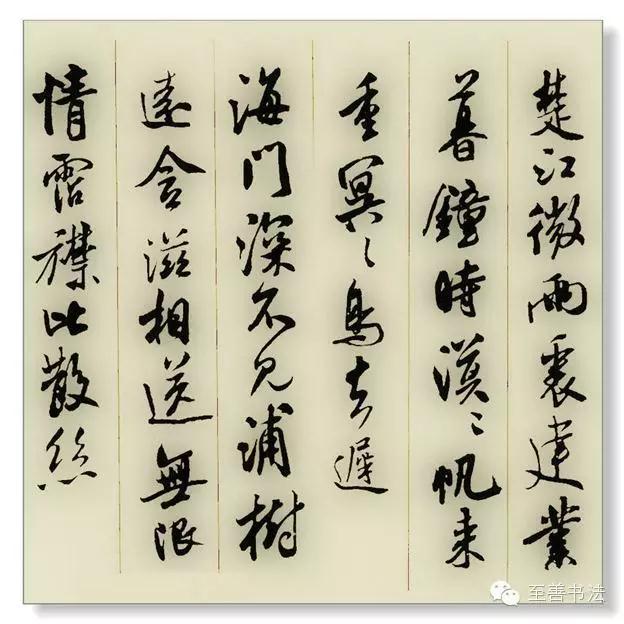 楚江微雨裏建業
暮鐘時漠〻帆来
重冥〻鳥去遲
海門深不見浦樹
遠含滋相送無限
情霑襟比散絲
至善书法